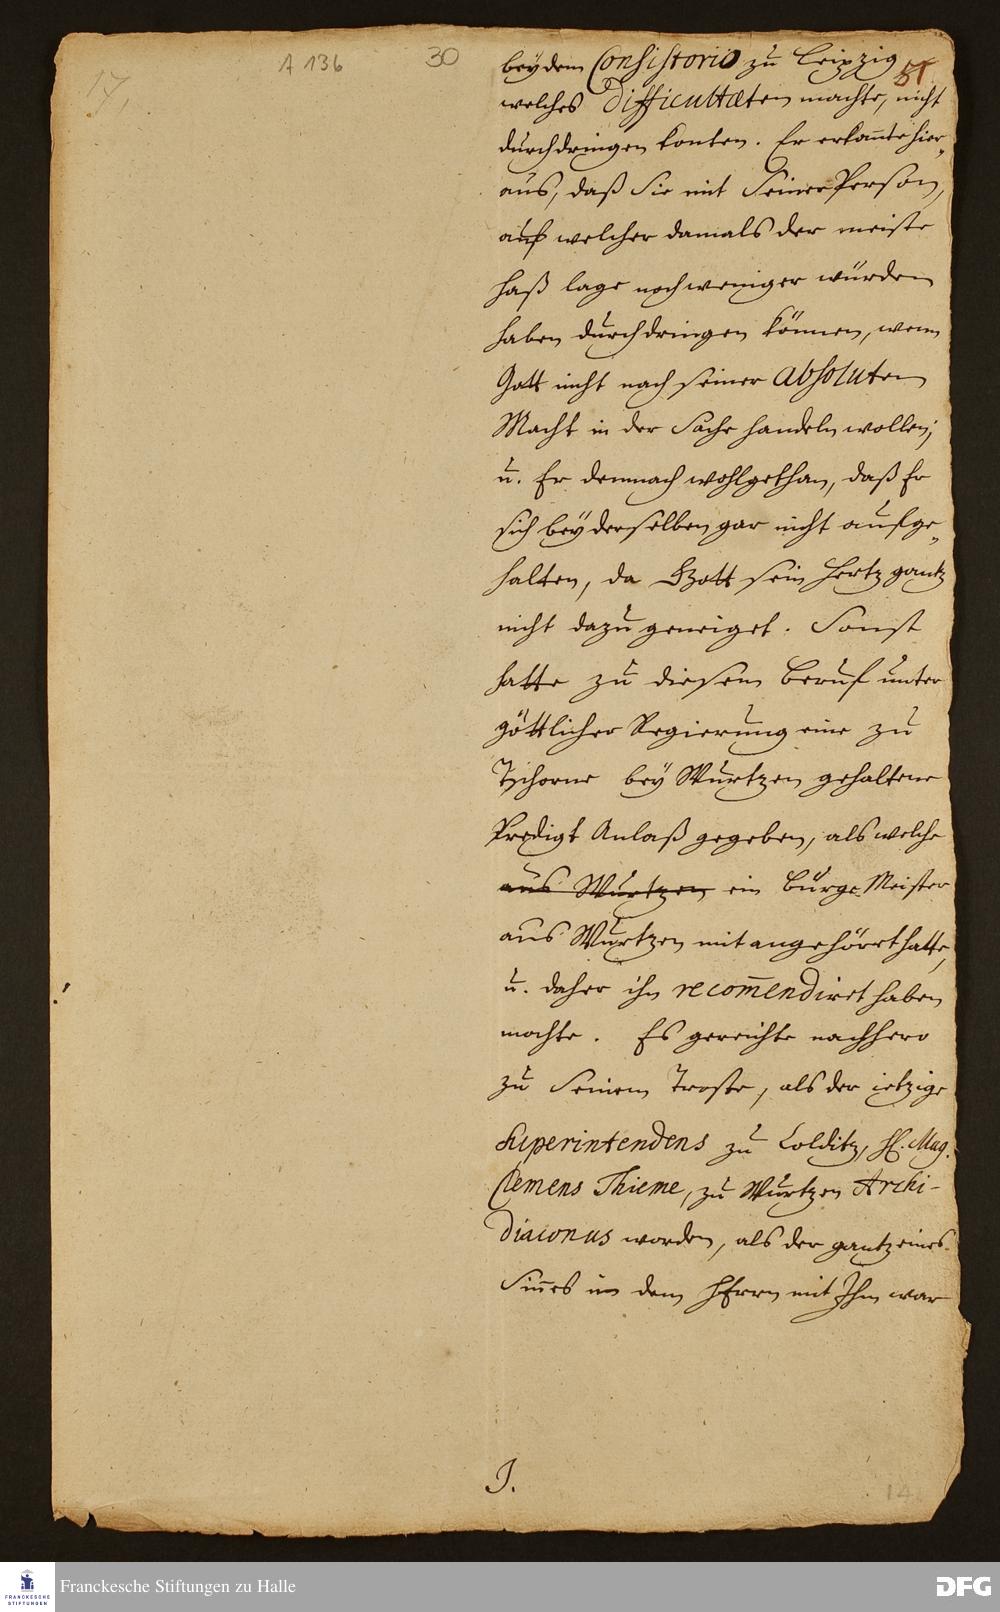 17,
A 136
30
51
bey dem Consistorio zu Leipzig
welches Difficultæten machte, nicht
durchdringen konten. Er erkante hier„
aus, daß Sie mit Seiner Person,
auf welcher damals der meiste
Haß lage noch weniger würden
haben durchdringen können, wenn
Gott nicht nach seiner absoluten
Macht in der Sache handeln wollen;
u. Er demnach wohlgethan, daß Er
sich bey derselben gar nicht aufge„
halten, da Gott sein Hertz gantz
nicht dazu geneiget. Sonst
hatte zu diesem Beruf unter
göttlicher Regierung eine zu
Tschorne bey Wurtzen gehaltene
Predigt Anlaß gegeben, als welche
aus Wurtzen ein BürgeMeister
aus Wurtzen mit angehöret hatte,
u. daher ihn recom̄endiret haben
mochte. Es gereichte nachhero
zu Seinem Troste, als der ietzige
Superintendens zu Colditz, H. Mag.
Clemens Thieme, zu Wurtzen Archi-
diaconus worden, als der gantz eines
Sin̄es in dem HErrn mit Ihm war
J.
14
Franckesche Stiftungen zu Halle
FRANCKESCHE
STIFTUNGEN
DFG